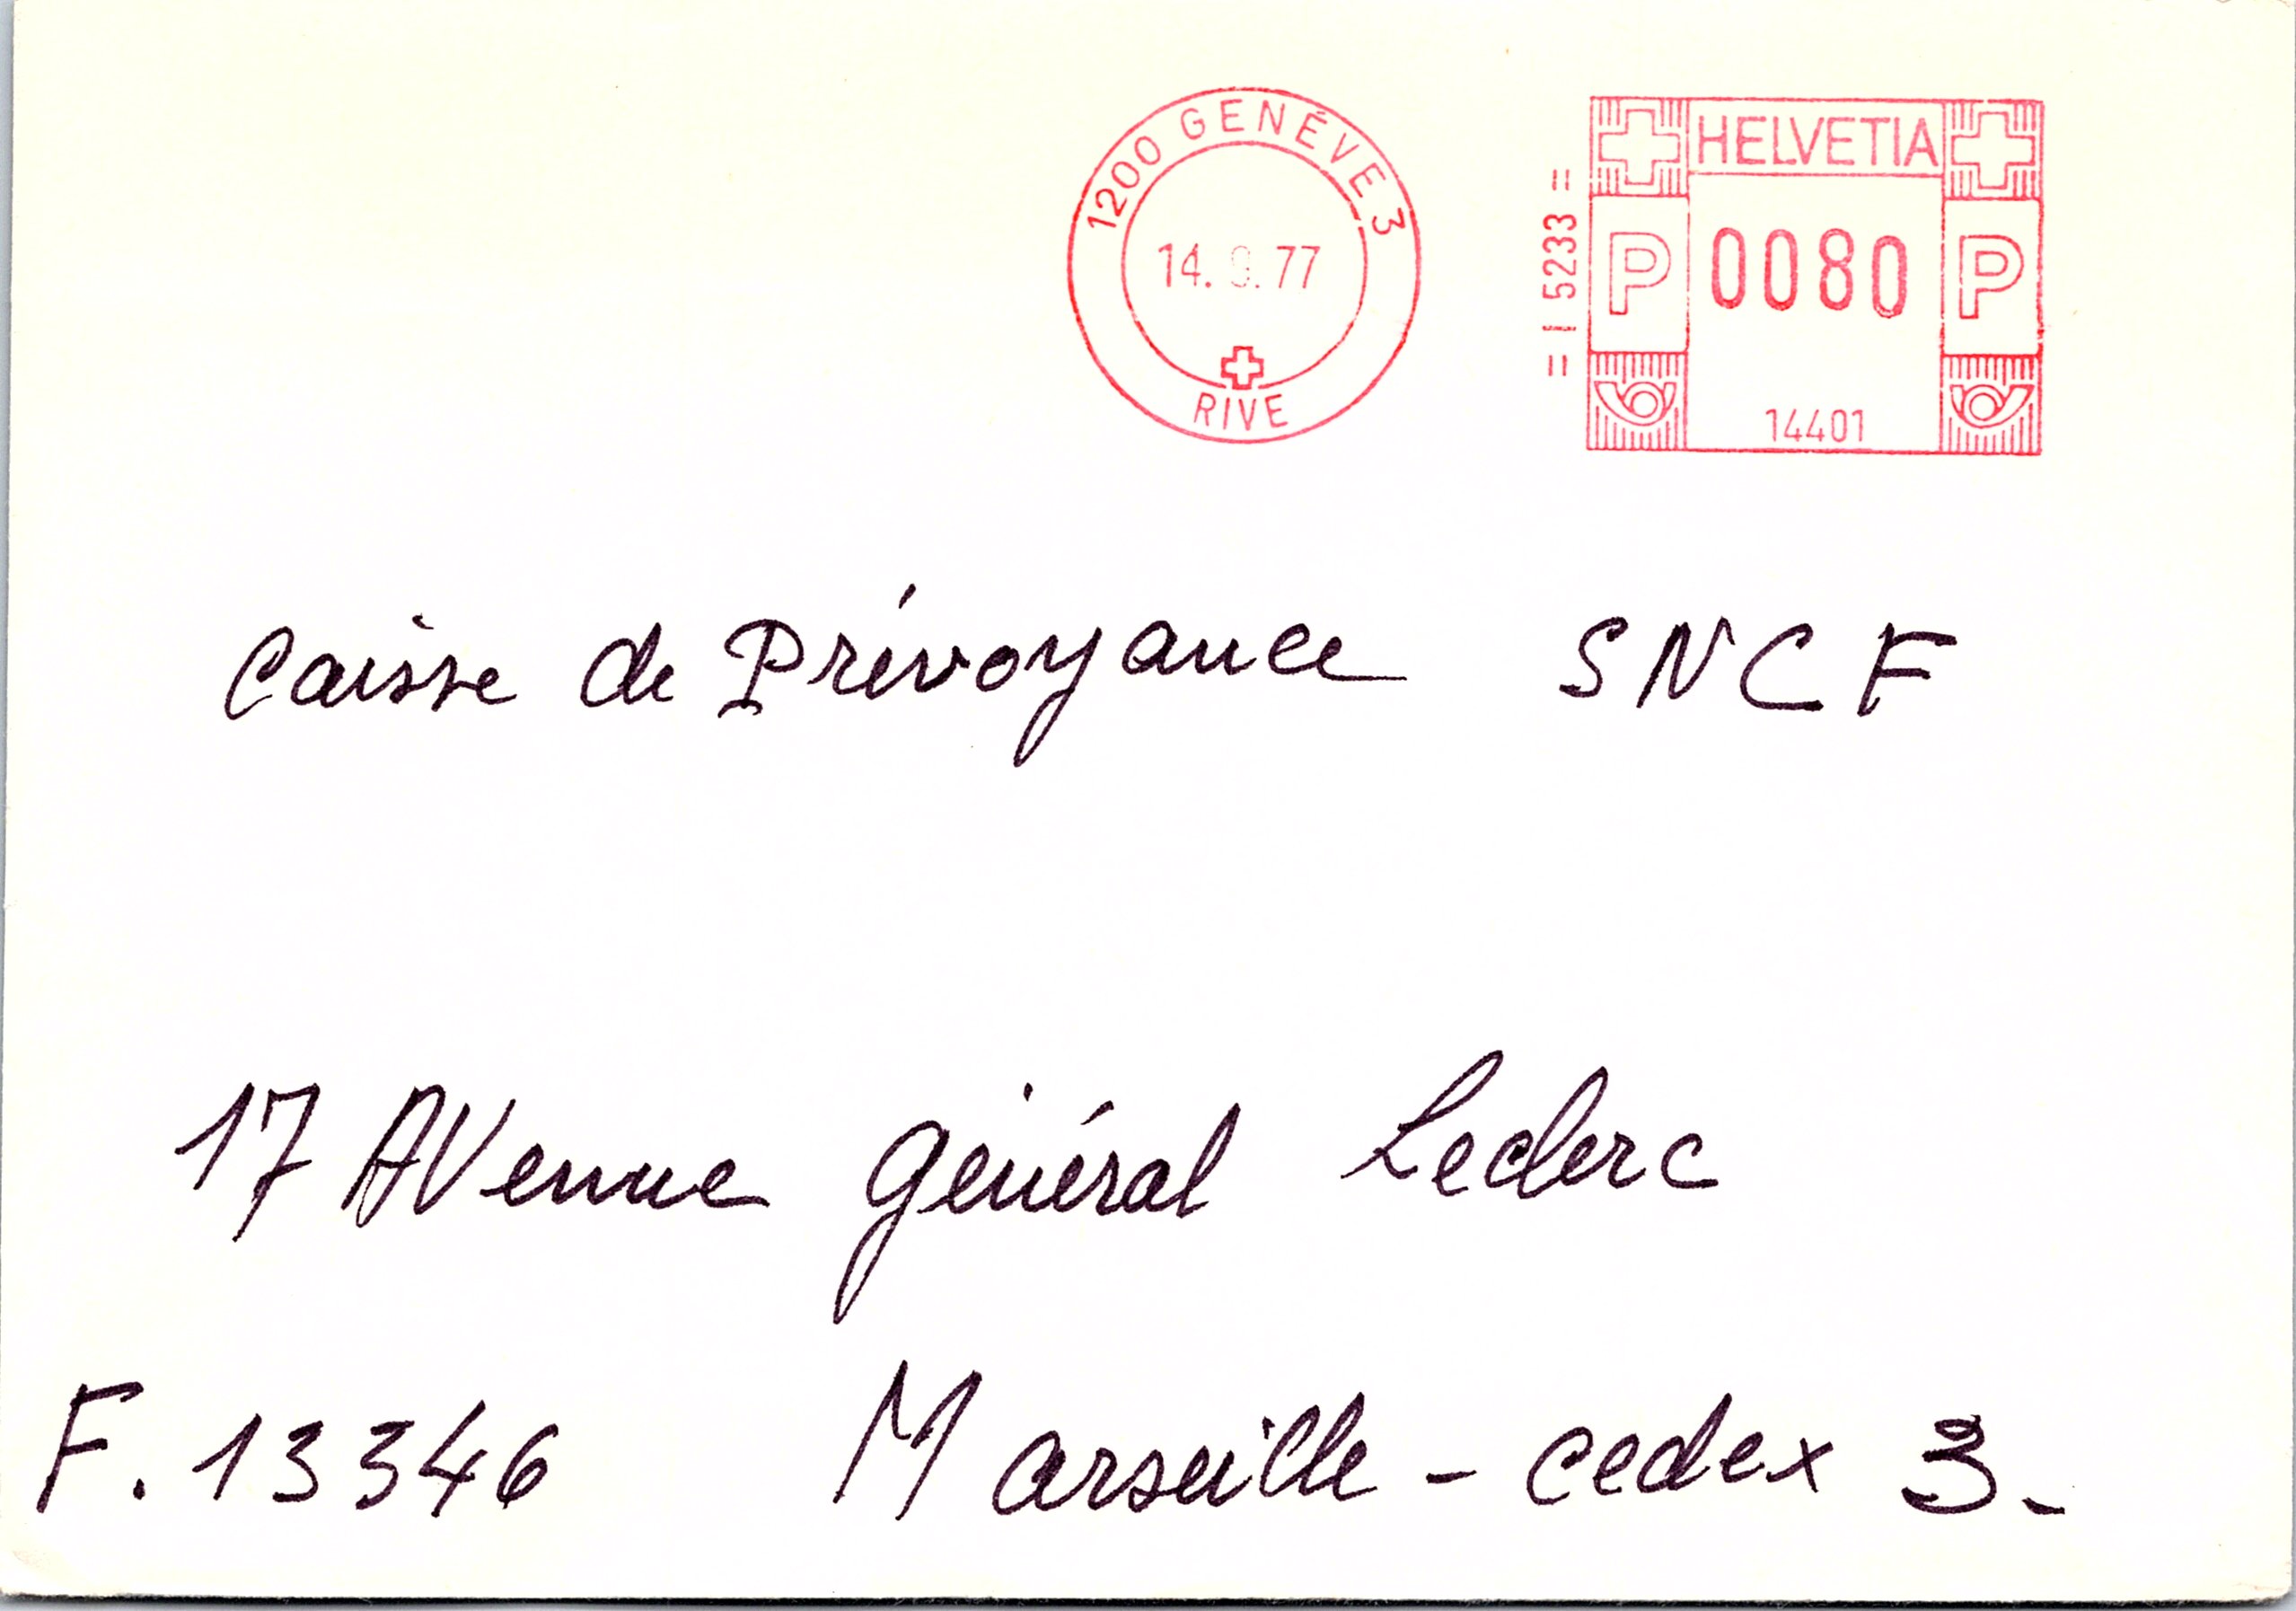 1200 GENÈVE 3
14. 9. 77
RIVE
= | 5233 =
HELVETIA
P 0080 P
14401
Caisse de Prévoyance SNCF
17 Avenue Général Leclerc
F. 13346 Marseille - cedex 3.